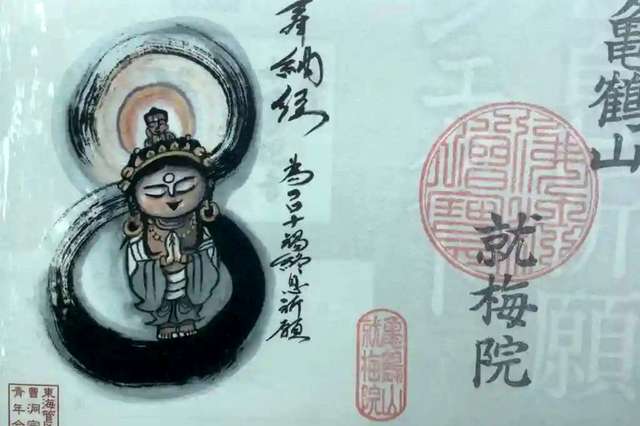 亀鶴山
就梅院
奉納経
為コロナ禍終息祈願
亀鶴山
就梅院
東海管
曹洞宗
青年会